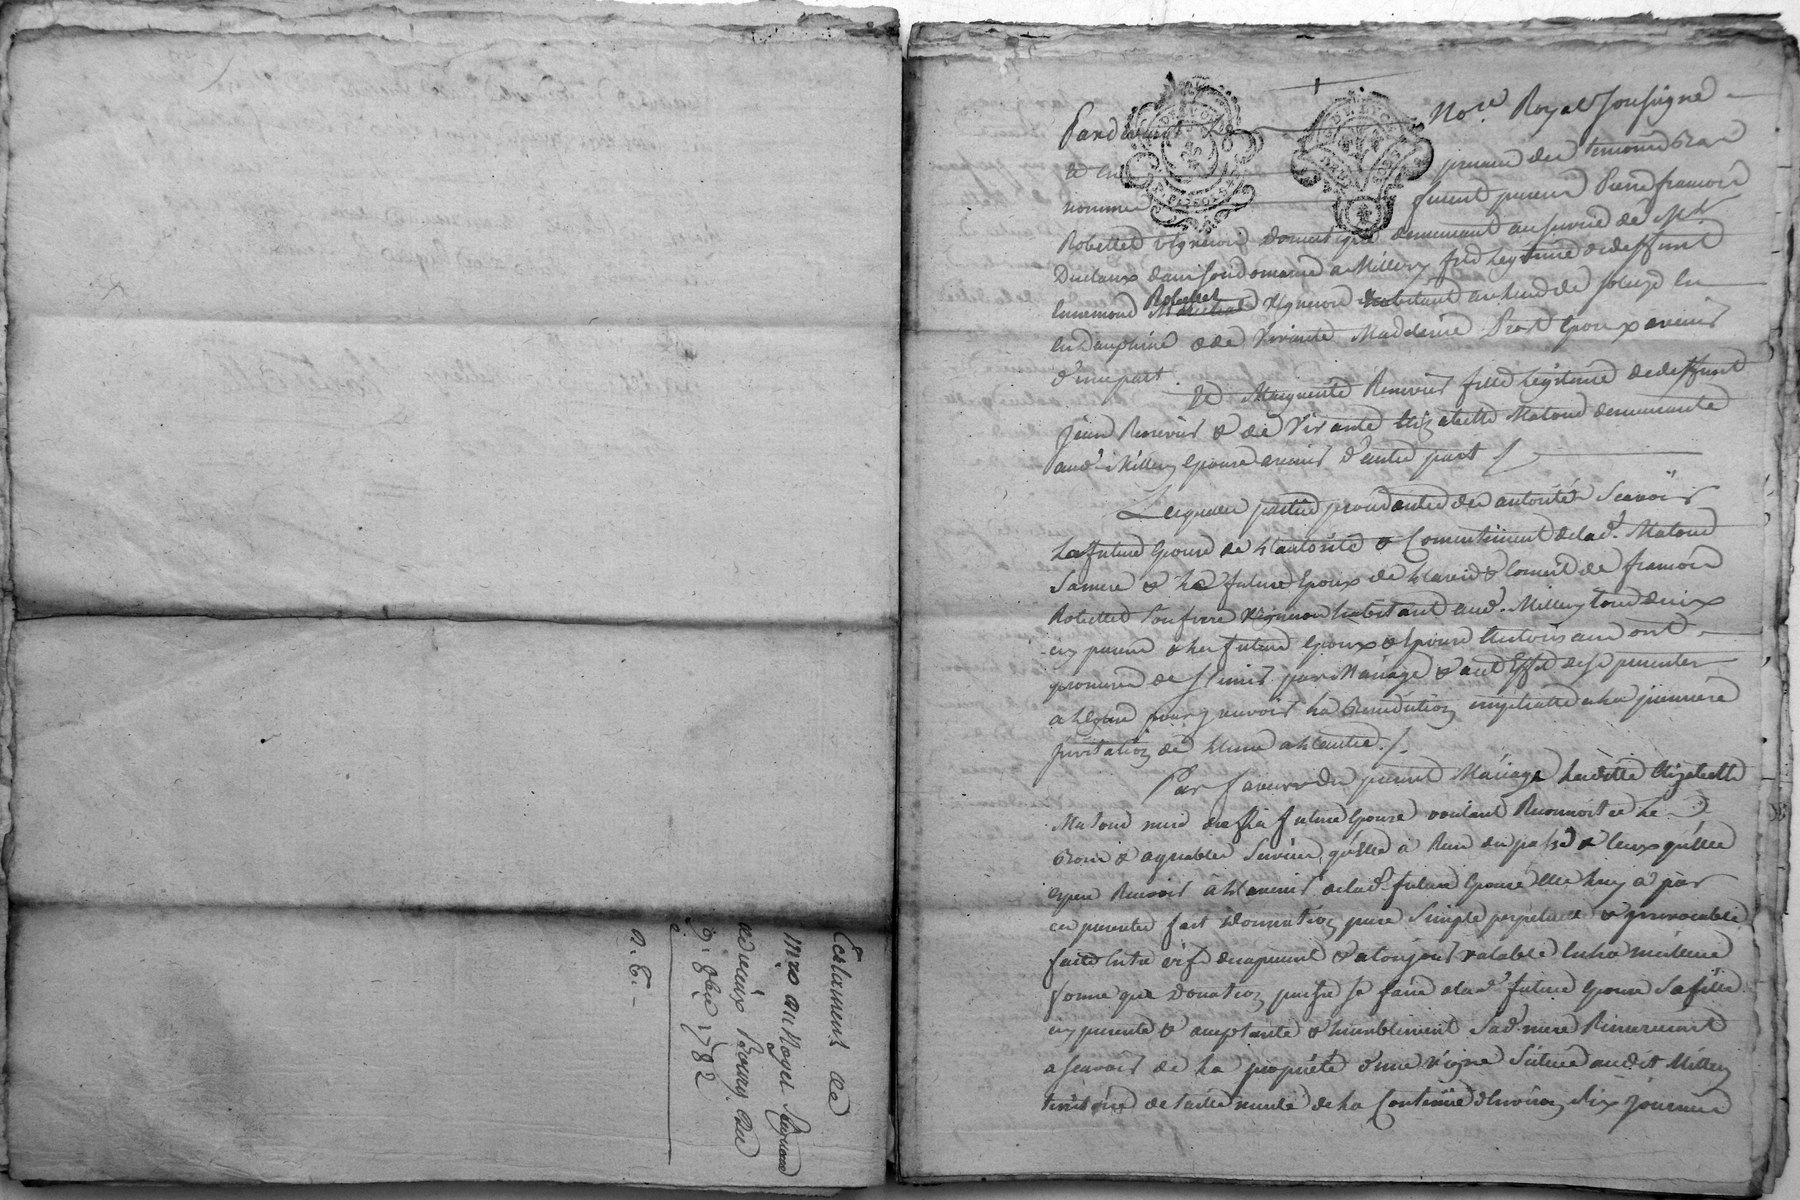 Testament de
a Vieux Bourg du
9. 8bre 1782
Pardevant Le Nore. Royal Soussigné
& en presence des temoins bas
nommés furent presens Pierre francois
Robellet vigneron domestique demeurant au service de Mr.
Duclaux dans son domaine a Millery fils Legitime de deffunt
Ennemond Robellet vigneron habitant au lieu de
en Dauphiné & de vivante Madelaine Prost Epoux avenir
d'une part.
Et Marguerite Renevier fille Legitime de deffunt
Jean Renevier & de vivante Elizabeth Matoud demeurante
aud. Millery Epouse avenir d'autre part
Lesquelles parties procedantes des autorités Scavoir
La future Epouse de L'autorité & Consentement de lad. Matoud
Sa mere & Le futur Epoux de L'avis & Conseil de francois
Robellet Son frere vigneron habitant aud. Millery tous deux
icy presens & les futurs Epoux & Epouse ont
promis de S'unir par Mariage & a cet Effet de se presenter
a L'Eglise pour y recevoir La Benediction nuptialle a La premiere
invitation de L'une a L'autre.
Par faveur du present Mariage Laditte Elizabeth
Matoud mere de La future Epouse voulant Reconnoitre Les
Bons & agreables Services qu'elle a Recu du passé & Ceux qu'elle
espere Recevoir a L'avenir de lad. future Epouse Elle luy a par
ces presentes fait Donnation pure Simple perpetuelle & irrevocable
faite Entre vifs des apresent & a toujours valable En La meilleure
forme que Donation puisse se faire a lad. future Epouse Sa fille
icy presente & acceptante & humblement Sad. mere Remerciant
a Scavoir de La proprieté d'une vigne Scituée audit Millery
territoire de taille de La Contenue d'Environ Six Journées